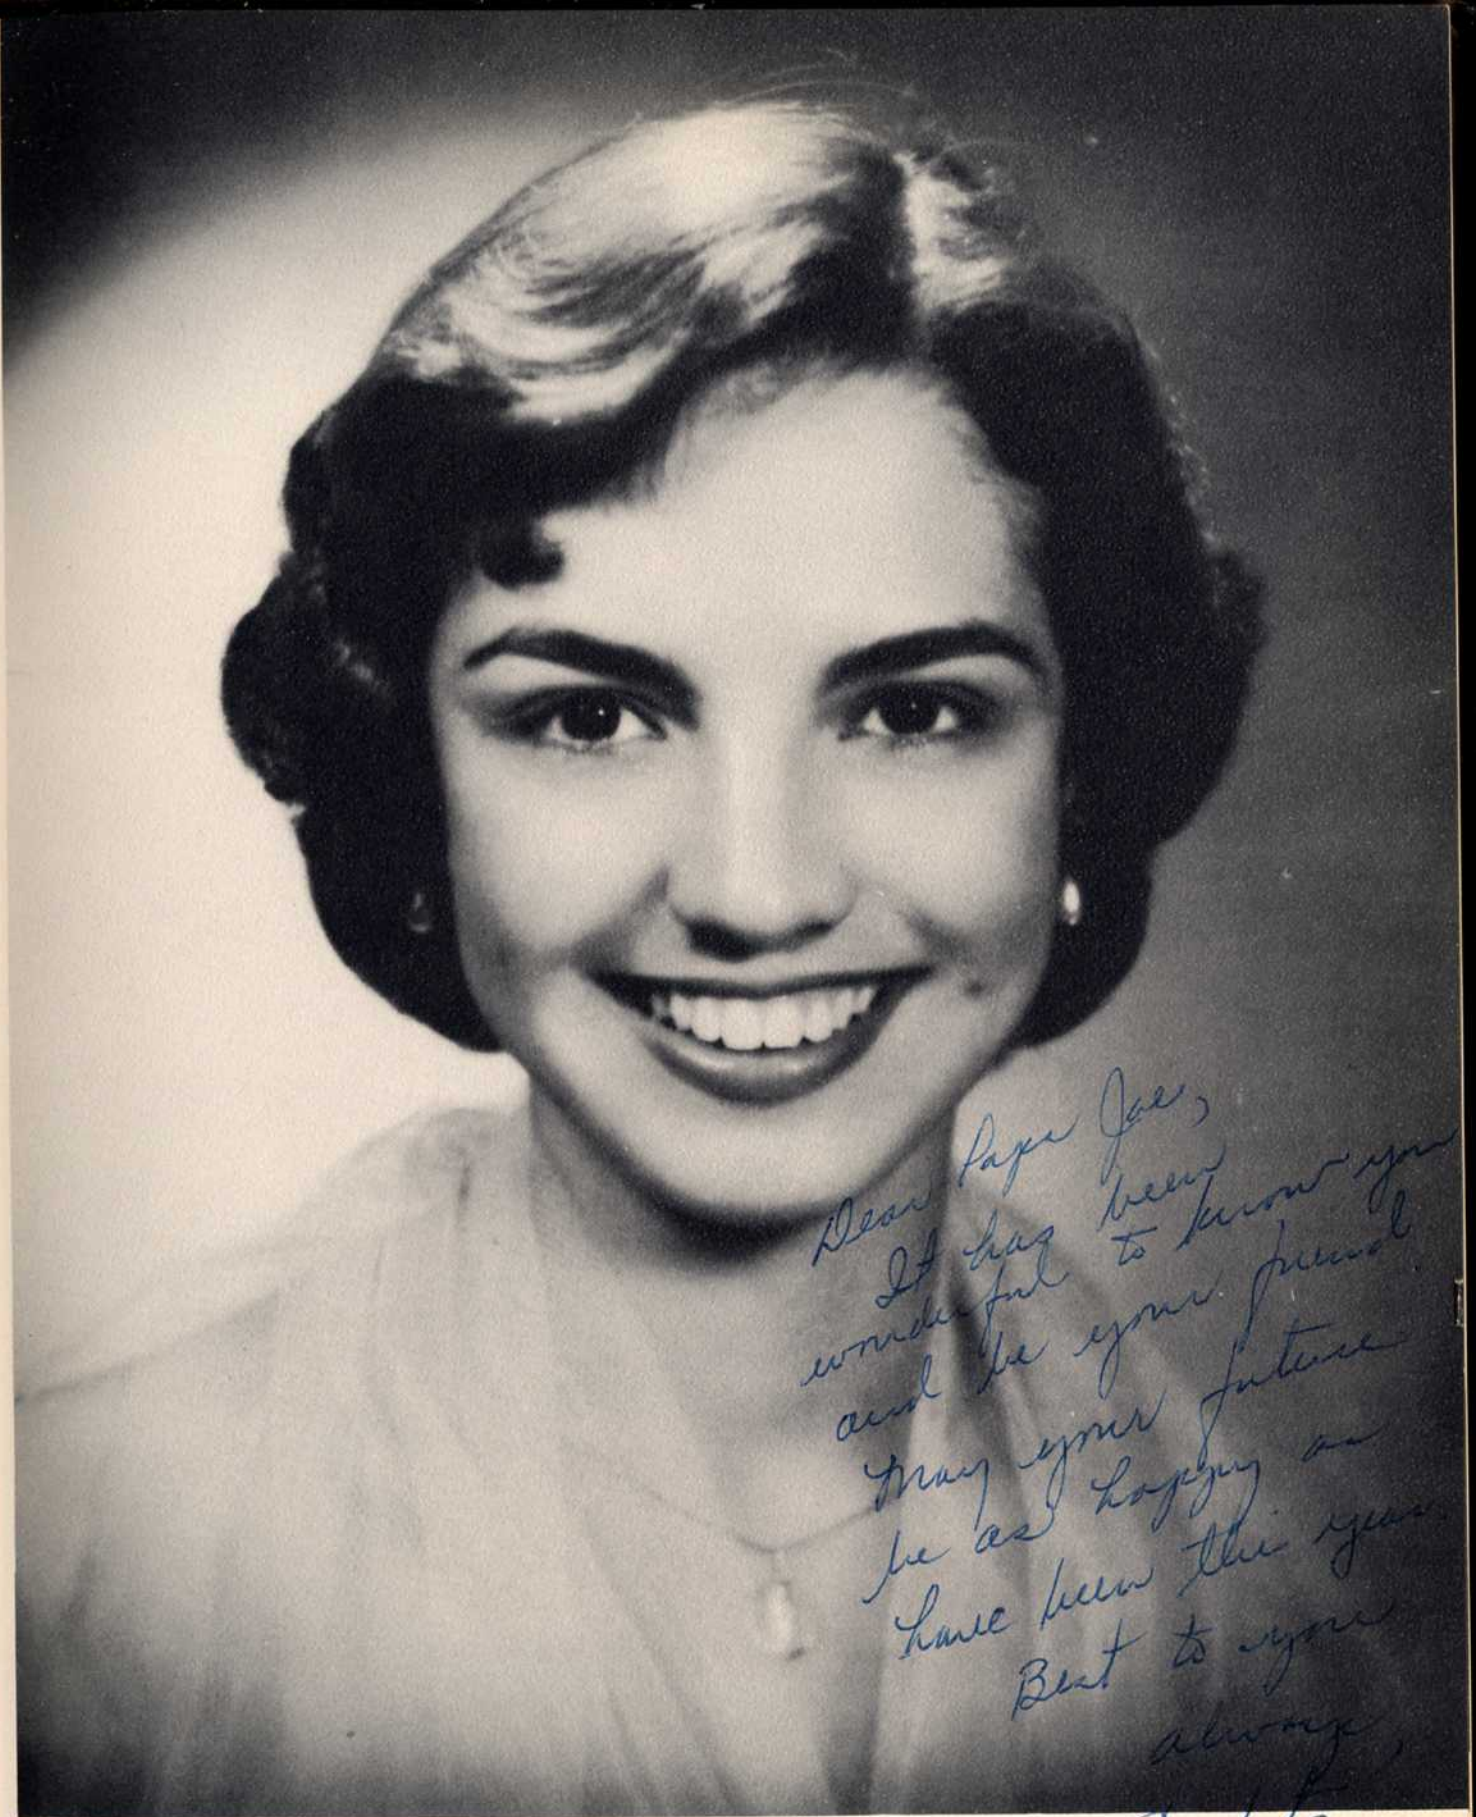 Dear Papa Joe,
It has been
wonderful to know you
and be your friend.
May your future
be as happy as
have been this year.
Best to you
always,